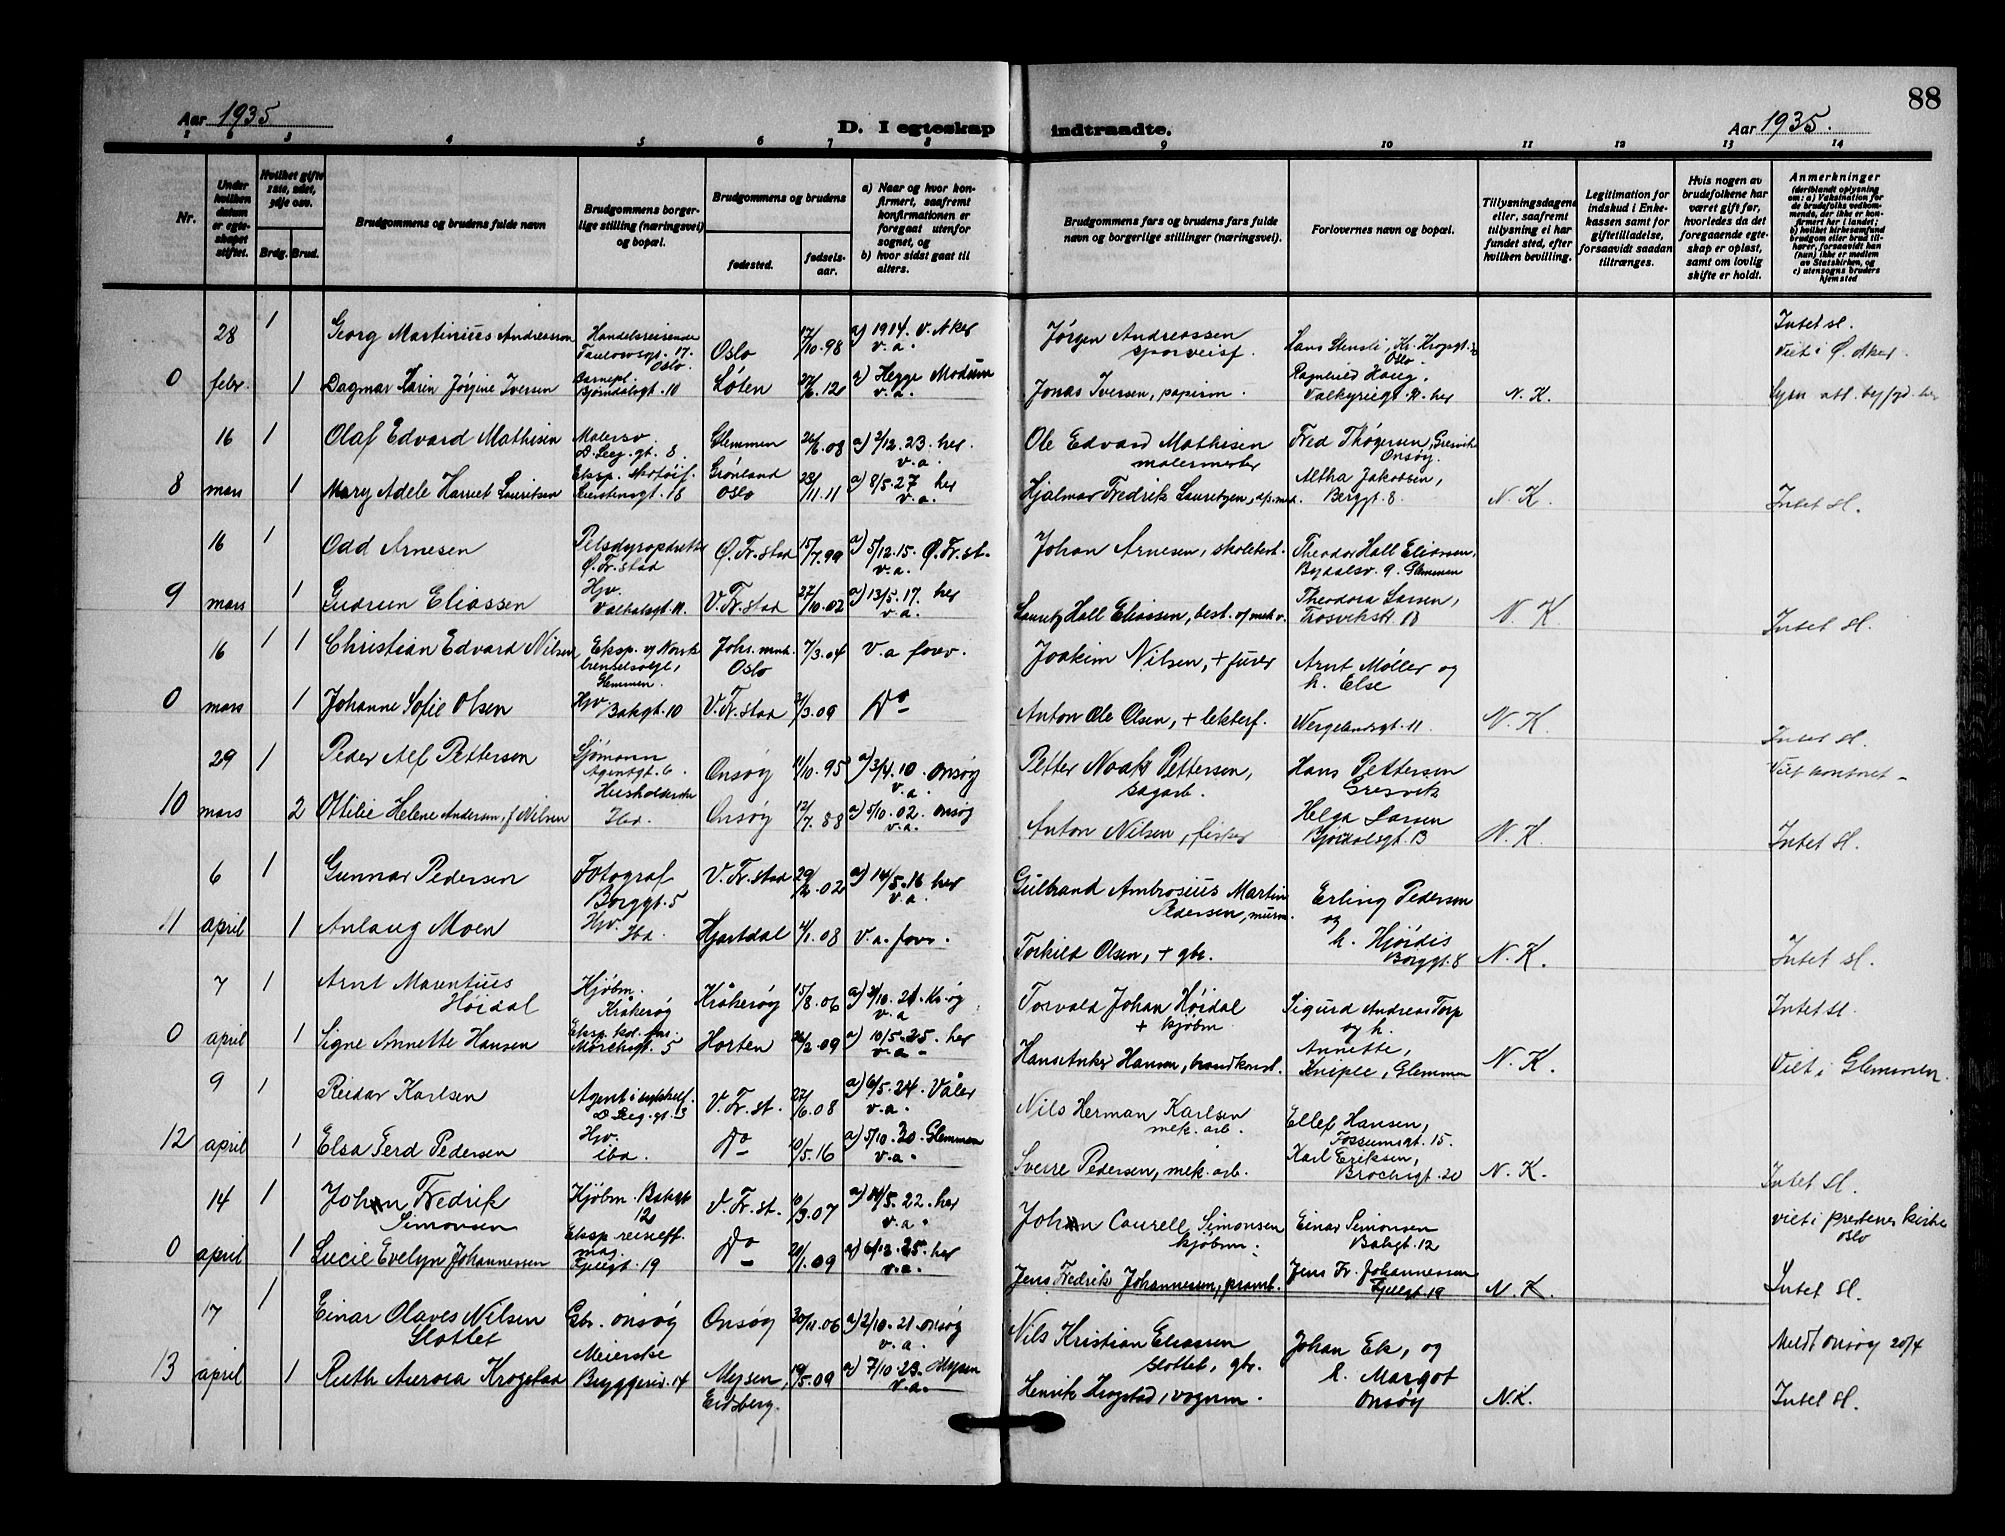 88
Aar 1935
D. I egteskap indtraadte.
Aar 1935.
1 2 3 4 5 6 7 8 9 10 11 12 13 14
Nr.
Under hvilken datum er egteskapet stiftet.
Hvilket gifte 1ste, 2det, 3dje osv.
Brdg. Brud.
Brudgommens og brudens fulde navn
Brudgommens borgerlige stilling (næringsvei) og bopæl.
Brudgommens og brudens
fødested.
fødselsaar.
a) Naar og hvor konfirmert, saafremt konfirmationen er foregaat utenfor sognet, og
b) hvor sidst gaat til alters.
Brudgommens fars og brudens fars fulde navn og borgerlige stillinger (næringsvei).
Forlovernes navn og bopæl.
Tillysningsdagene eller, saafremt tillysning ei har fundet sted, efter hvilken bevilling.
Legitimation for indskud i Enkekassen samt for giftetilladelse, forsaavidt saadan tiltrænges.
Hvis nogen av brudefolkene har været gift før, hvorledes da det foregaaende egteskap er opløst, samt om lovlig skifte er holdt.
Anmerkninger (deriblandt oplysning om: a) Vaksination for de brudefolks vedkommende, der ikke er konfirmert her i landet; b) hvilket kirkesamfund brudgom eller brud tilhører, forsaavidt han (hun) ikke er medlem av Statskirken, og c) utensogns bruders hjemsted
28 1 Georg Martinius Andreassen Handelsreisende Taulowsgt. 17. Oslo Oslo 17/10.98 a) 1914. V. Aker v.a. Jørgen Andreassen sporveisf. Hans Stensli, Kr. Kroghsgt. Oslo. Intet sl. Viet i Ø. Aker.
0 febr. 1 Dagmar Karin Jørgine Iversen Barnepl. Bjørndalsgt. 10 Løten 27/6.12 a) Hegge Modum v.a. Jonas Iversen, papirm. Ragnhild Haug, Valkyriegt. 11. her N.K.
16 1 Olaf Edvard Mathisen Malersv. D. Leeg. gt. 8. Glemmen 26/6.08 a) 2/12.23. her. v.a. Ole Edvard Mathisen malermester Fred Thøgersen, Gresvik Onsøy.
8 mars 1 Mary Adele Harriet Lauritsen Eksp. 18 Grønland Oslo 23/11.11 a) 8/5.27 her v.a. Hjalmar Fredrik Lauritzen, Altha Jakobsen, Berggt. 8. N.K. Intet sl.
16 1 Odd Arnesen Pelsdyropdretter Ø. Fr.stad Ø. Fr.stad 15/7.99 a) 5/12.15. Ø. Fr.st. v.a. Johan Arnesen, skolebest. Theodor Hall Eliassen, Bydalsv. 9. Glemmen
9 mars 1 Gudrun Eliassen Hjv. Valhalsgt. 11. V. Fr.stad 27/10.02 a) 13/5.17. her v.a. Lauritz Hall Eliassen, best. af mek. v. Theodora Larsen, Trosvikstr. 18 N.K. Intet sl.
16 1 1 Christian Edvard Nilsen Eksp. v/ Norsk brendselsolje, Glemmen. Johs. mnh. Oslo 7/3.04 v.a forr. Joakim Nilsen, + furer Arnt Møller og h. Else
0 mars 1 Johanne Sofie Olsen Hjv. Bakgt. 10 V. Fr.stad 31/3.09 Do Anton Ole Olsen, + lekterf. Wergelandsgt. 11. N.K. Intet sl.
29 1 Peder Alf Pettersen Sjømann Agentgt. 6 Onsøy 11/10.95 a) 3/4.10. Onsøy v.a. Petter Noak Pettersen, sagarb. Hans Pettersen Gresvik Viet kontoret -
10 mars 2 Ottilie Helene Andersen, f Nilsen Husholderske Ibd. Onsøy 12/7.88 a) 5/10.02. Onsøy v.a. Anton Nilsen, fisker Helga Larsen Bjørndalsgt. 13 N.K. Intet sl.
6 1 Gunnar Pedersen Fotograf Borggt. 5 V. Fr.stad 29/12.02 a) 14/5.16 her v.a. Gulbrand Ambrosius Martin Pedersen, murm. Erling Pedersen og
11 april 1 Anlaug Moen Hjv. Ibd. Hjartdal 4/1.08 v.a. forr. Torkild Olsen, + gbr. h. Hjørdis Borggt. 8 N.K. Intet sl.
7 1 Arnt Marentius Høidal Kjøbm. Kråkerøy Kråkerøy 15/8.06 a) 2/10.21. Kr.øy v.a Torvald Johan Høidal + kjøbm. Sigurd Andreas Torp og h. Intet sl.
0 april 1 Signe Annette Hansen Eksp. kol. for. Mørchsgt. 5 Horten 26/2.09 a) 10/5.25. her v.a. Hans Anker Hansen, brandkonst. Annette, Kniple, Glemmen N.K. Viet i Glemmen.
9 1 Reidar Karlsen Agent i D. Leeg. gt. 13 V. Fr. st. 27/6.08 a) 6/5.24. Våler v.a. Nils Herman Karlsen mek. arb. Ellef Hansen, Fossumsgt. 15.
12 april 1 Elsa Gerd Pedersen Hjv. ibd. Do 10/5.16 a) 5/10.30. Glemmen v.a. Sverre Pedersen, mek. arb. Karl Eriksen, Brochsgt. 20 N.K. Intet sl.
14 1 John Fredrik Simonsen Kjøbm. Bakgt 12 V. Fr. st. 10/9.07 a) 14/5.22. her v.a. John Caurell Simonsen kjøbm. Einar Simonsen Bakgt. 12 viet i prestenes kirke Oslo
0 april 1 Lucie Evelyn Johannessen Eksp. reiseeff. mag. Fjellgt. 19 Do 20/1.09 a) 6/12.25. her v.a. Jens Fredrik Johannessen, pramb. Jens Fr. Johannessen Fjellgt. 19 N.K. Intet sl.
17 1 Einar Olaves Nilsen Slottet Gbr. Onsøy Onsøy 30/11.06 a) 2/10.21. Onsøy v.a. Nils Kristian Eliassen Slottet, gbr. Johan Ek, og Meldt Onsøy 20/4
13 april 1 Ruth Aurora Krogstad Meierske Bryggeriv. 14 Mysen, Eidsberg. 19/5.09 a) 7/10.23. Mysen v.a. Henrik Krogstad, vognm. h. Margot Onsøy N.K. Intet sl.